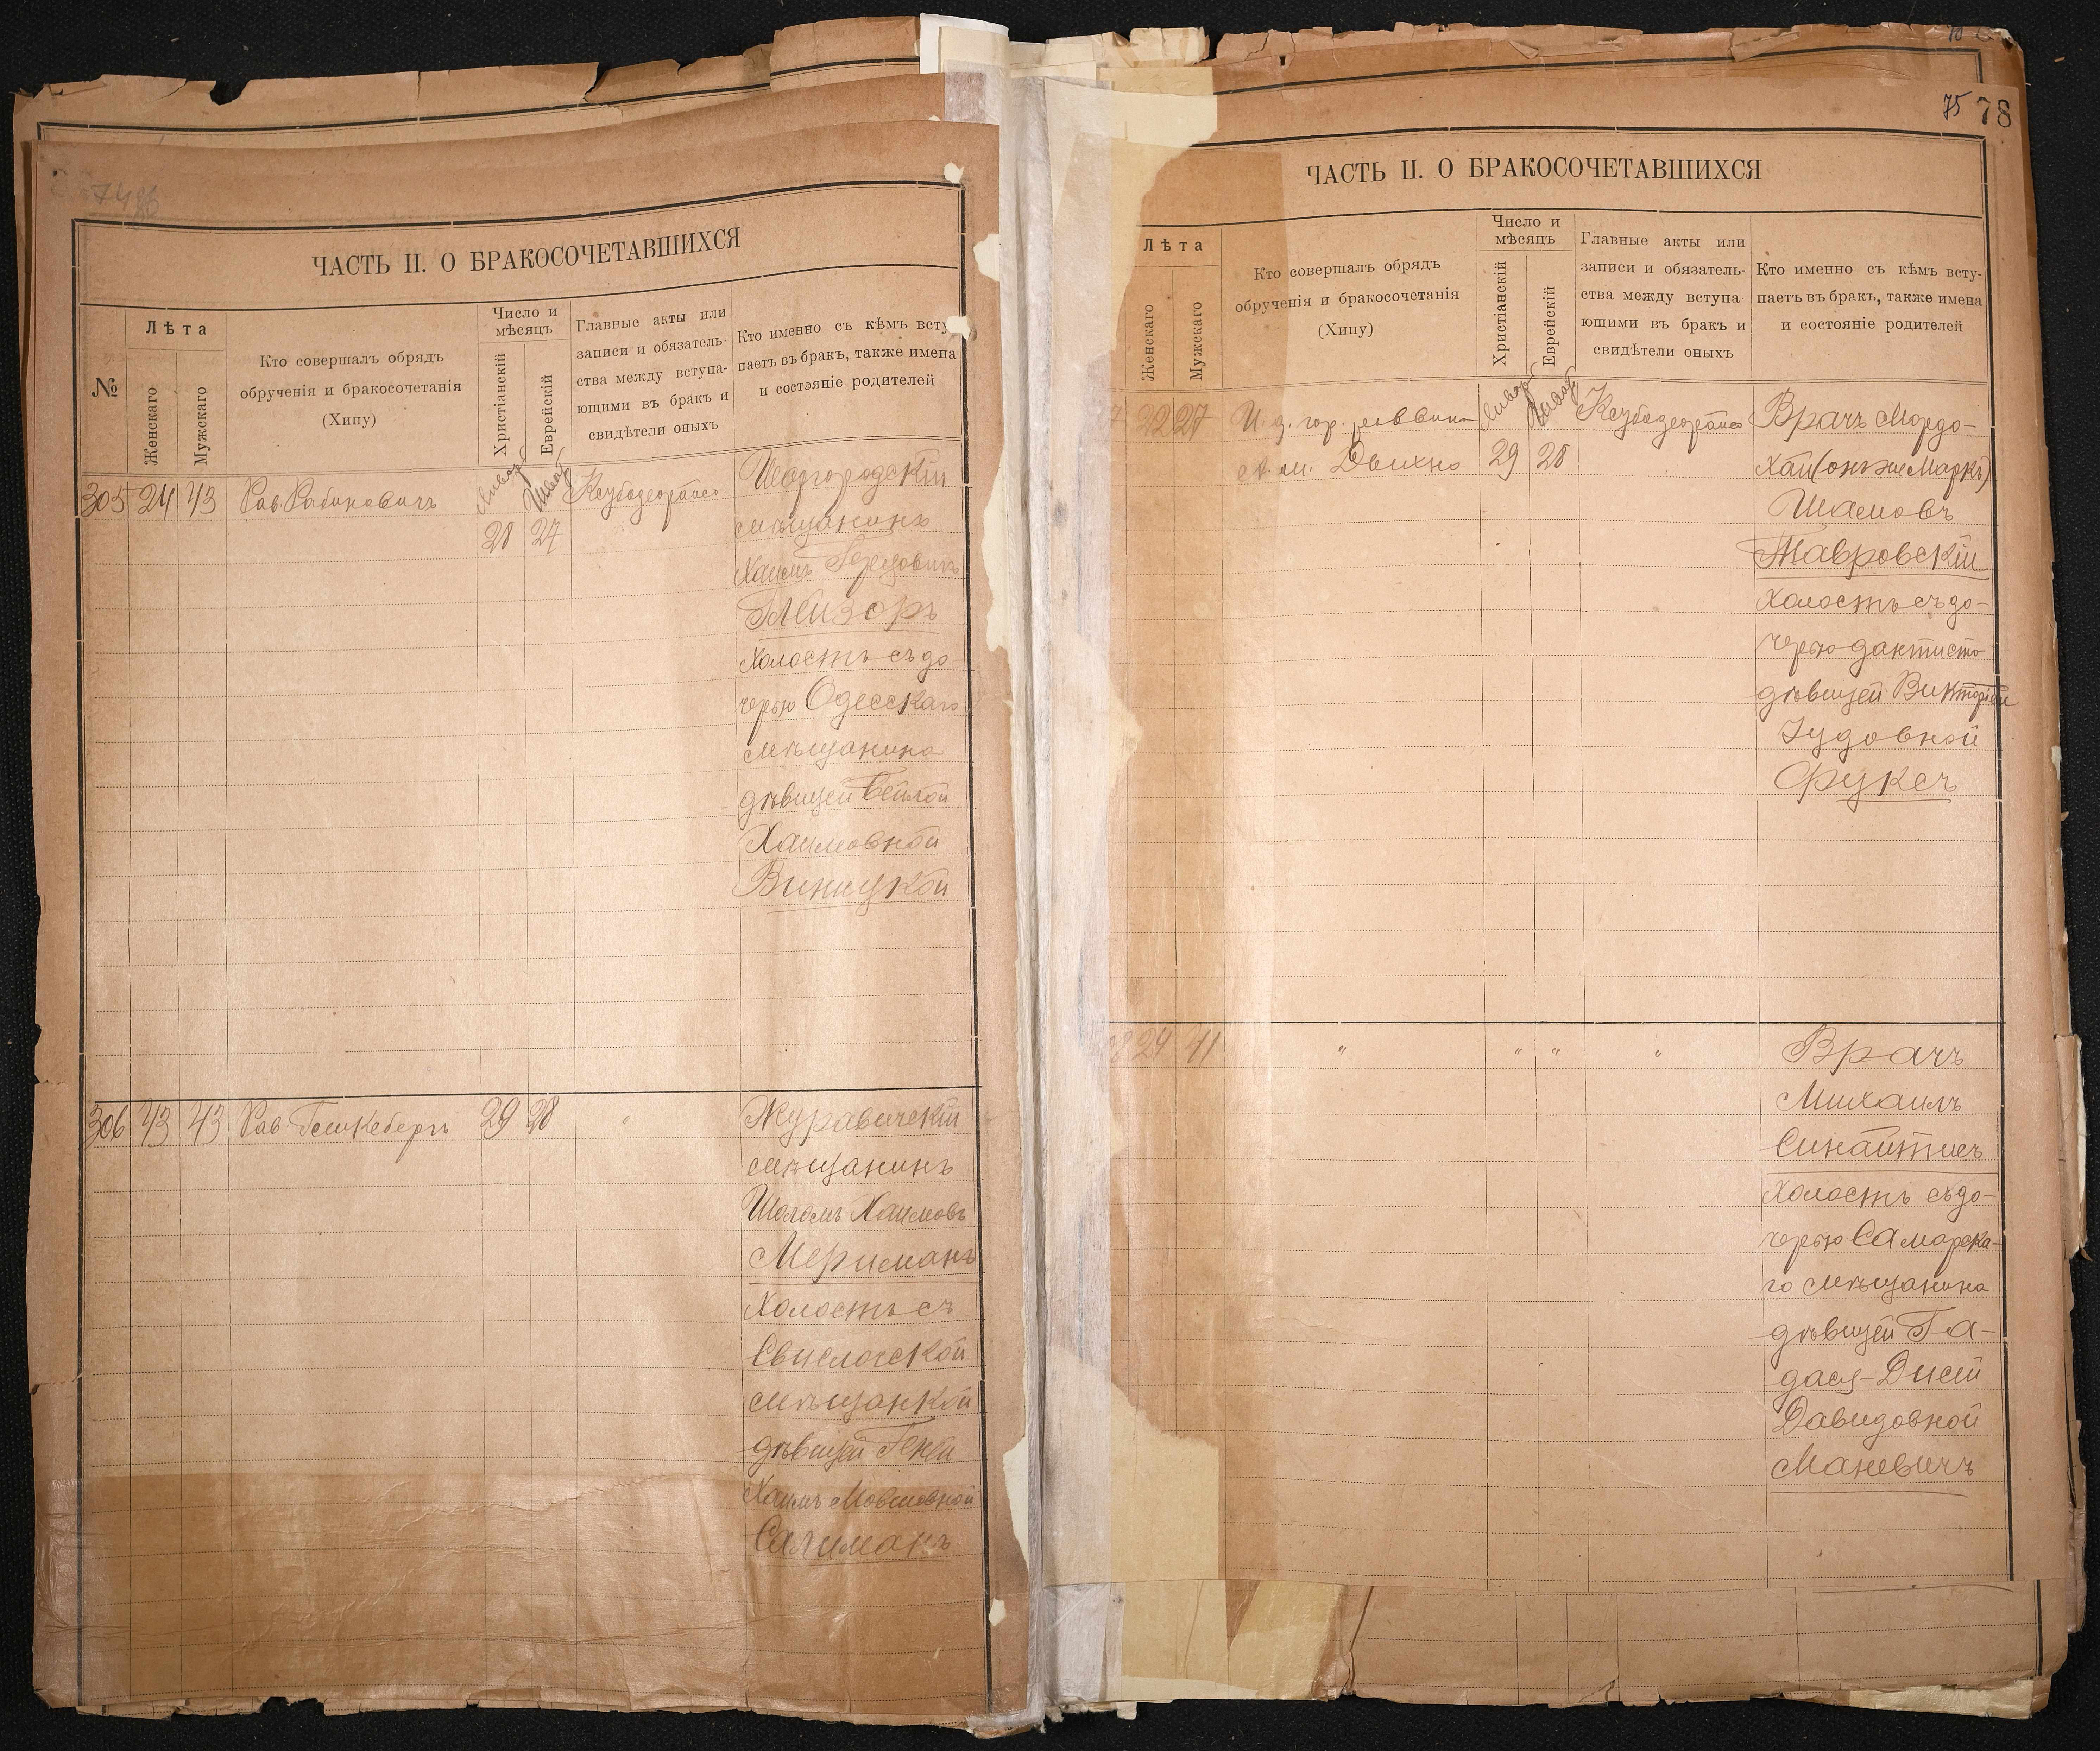 ЧАСТЬ II. О БРАКОСОЧЕТАВШИХСЯ
№
Лѣта
Женскаго
Мужскаго
Кто совершалъ обрядъ
обрученія и бракосочетанія
(Хипу)
Число и
мѣсяцъ
Христіанскій
Еврейскій
Главные акты или
записи и обязатель-
ства между вступа-
ющими въ бракъ и
свидѣтели оныхъ
Кто именно съ кѣмъ всту
паетъ въ бракъ, также имена
и состояніе родителей
305 24 43 Рав. Рабиновичъ
28 27
Шаргородскій
мѣщанинъ
Хаимъ
Глизоръ
Холостъ съ до-
черью Одесскаго
мѣщанина
дѣвицей Бейлой
Хаимовной
Винницкой
306 43 43 Рав. 29 28 "
Журавичскій
мѣщанинъ
Шоломъ Хаимовъ
Мериманъ
Холостъ съ
Свислочской
мѣщанкой
дѣвицей Геней
Хаимъ Мовшовной
Салиманъ
75 78
ЧАСТЬ II. О БРАКОСОЧЕТАВШИХСЯ
Лѣта
Женскаго
Мужскаго
Кто совершалъ обрядъ
обрученія и бракосочетанія
(Хипу)
Число и
мѣсяцъ
Христіанскій
Еврейскій
Главные акты или
записи и обязатель-
ства между вступа
ющими въ бракъ и
свидѣтели оныхъ
Кто именно съ кѣмъ всту-
паетъ въ бракъ, также имена
и состояніе родителей
7 22 27 И. д. гор. раввина
29 28
Врачъ Мордо-
хай (онъ же Маркъ)
Шаевовъ
Тавровскій
Холостъ съ до-
черью дантиста
дѣвицей Викторіей
Іудовной
Фуксъ
8 24 41 " " " "
Врачъ
Михаилъ
Синайтисъ
Холостъ съ до-
черью Самарска-
го мѣщанина
дѣвицей Га-
дася-Дисей
Давидовной
Маневичъ